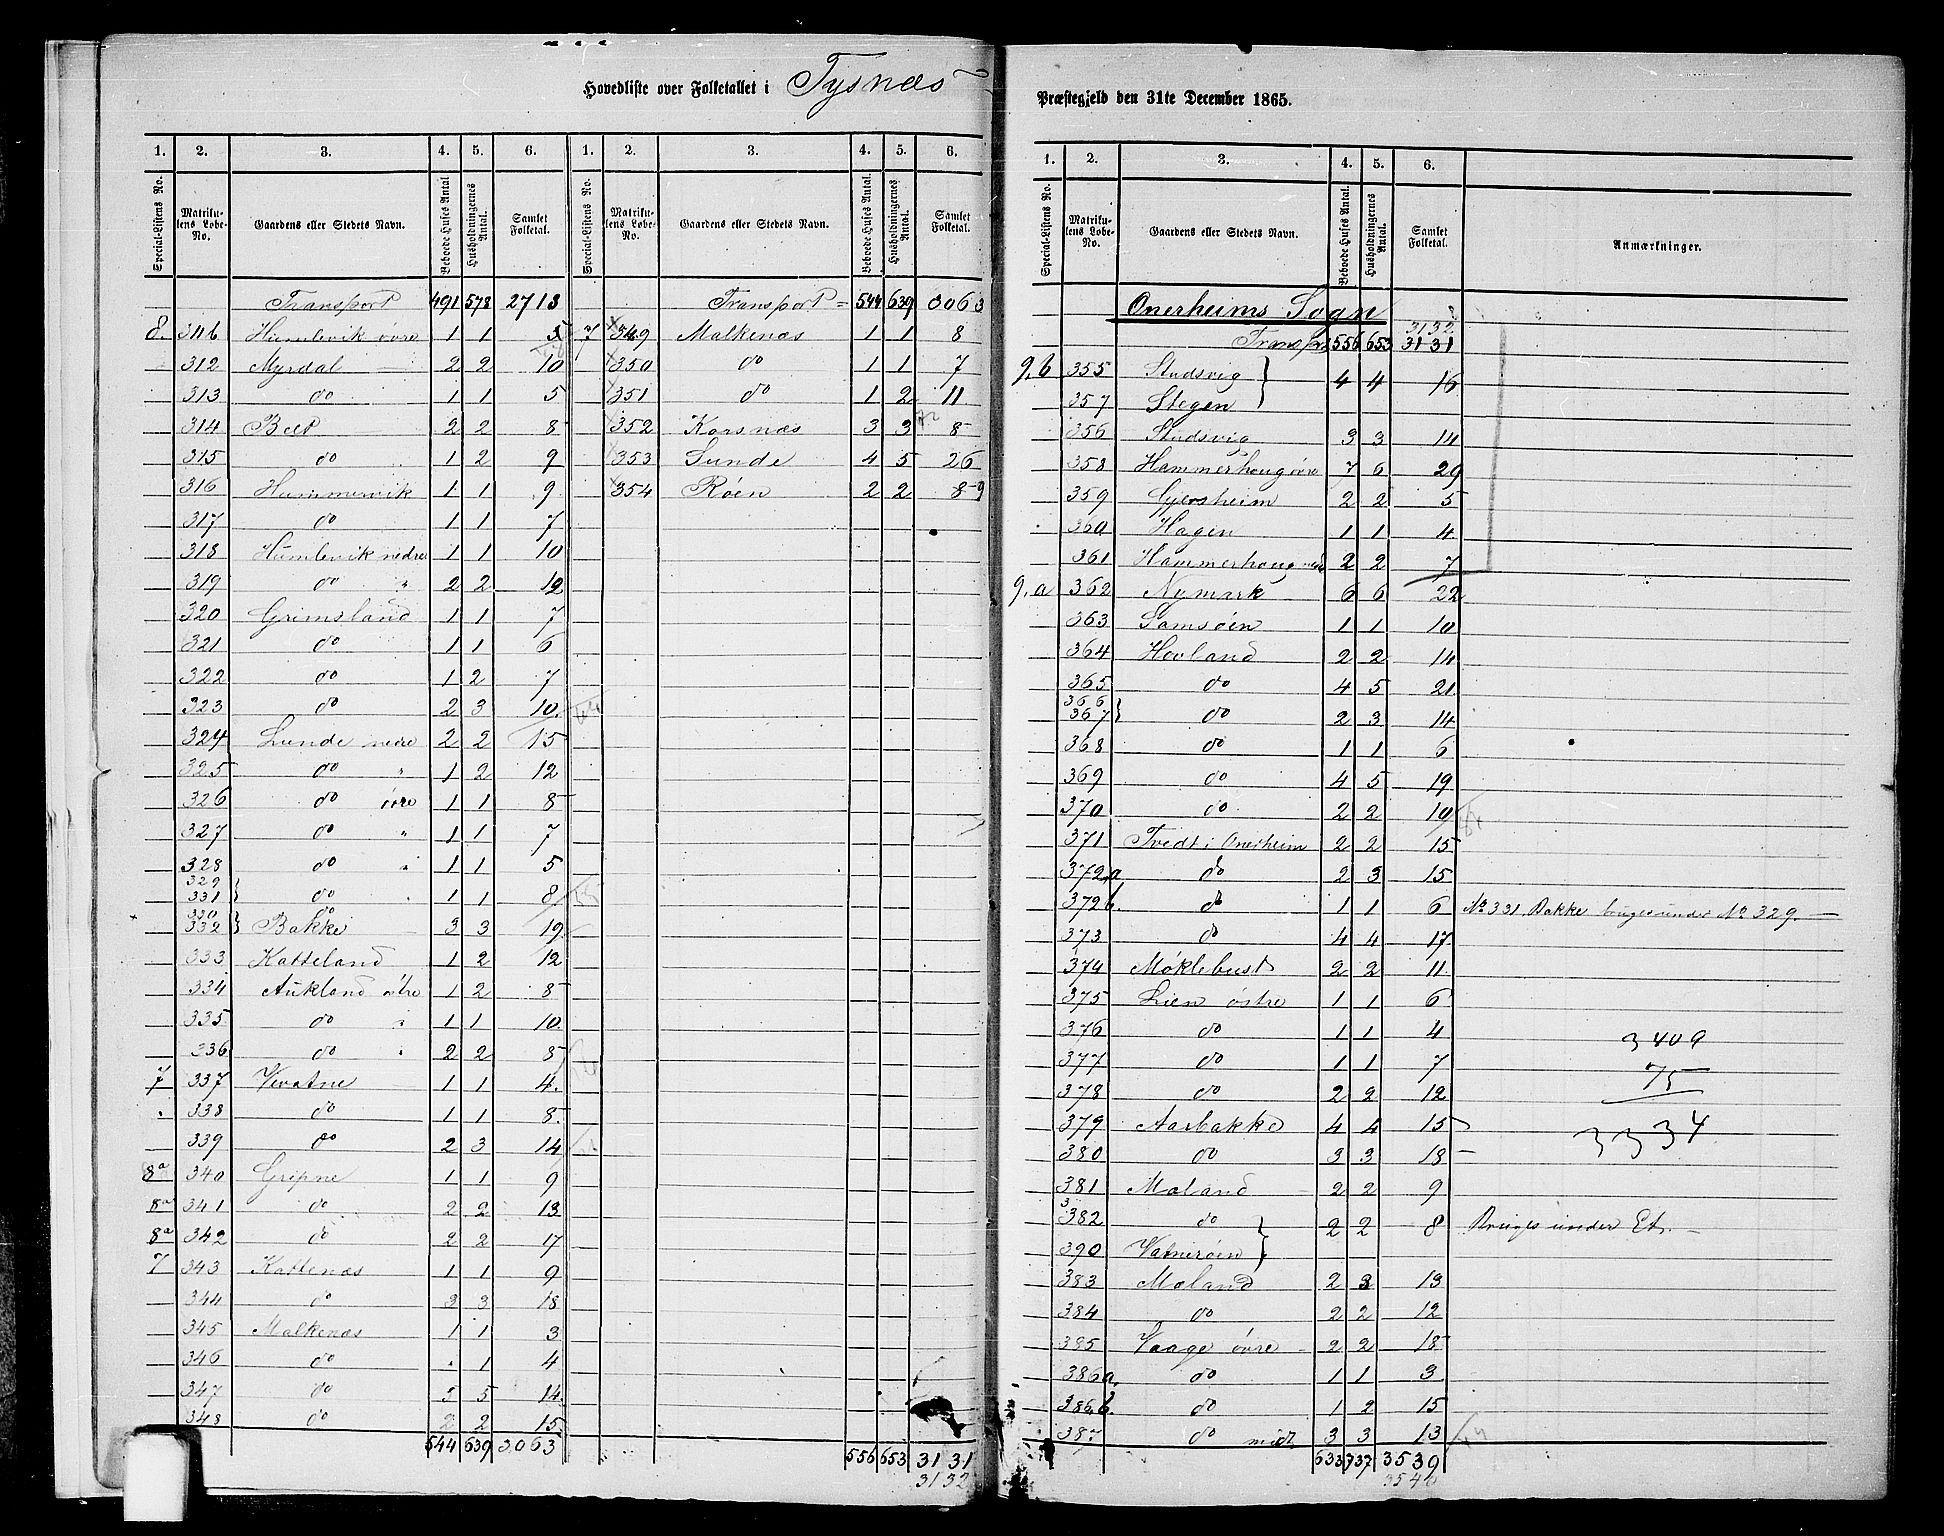 Hovedliste over Folketallet i Tysnæs
1. 2. 3. 4. 5. 6. 1. 2. 3. 4. 5. 6.
Special-Listens No. Matrikulens Løbe-No. Gaardens eller Stedets Navn. Beboede Huses Antal Husholdningernes Antal. Samlet Folketal. Special-Listens No. Matrikulens Løbe-No. Gaardens eller Stedets Navn. Beboede Huses Antal. Husholdningernes Antal. Samlet Folketal.
Transport 491 578 2713
8. 311 b Humlevik øvre 1 1 5
312 Myrdal 2 2 10
313 do 1 1 5
314 Beltø 2 2 8
315 do 1 2 9
316 Hummervik 1 1 9
317 do 1 1 7
318 Humlevik nedre 1 1 10
319 do " 2 2 12
320 Grimsland 1 1 7
321 do 1 1 6
322 do 1 2 7
323 do 2 3 10.
324 Lunde nedre 2 2 15
325 do " 1 2 12
326 do øvre 1 1 8
327 do " 1 1 7
328 do " 1 1 5
329 331 } do " 1 1 8
330 332 } do Bakke 3 3 19
333 Katteland 1 2 12
334 Aukland østre 1 2 8
335 do " 1 1 10
336 do " 2 2 8
7 337 Vevatne 1 1 4.
338 do 1 1 8.
339 do 2 3 14
8a 340 Gripne 1 1 9
8a 341 do 2 2 13
8a 342 do 2 2 17
7 343 Kattenæs 1 1 9
344 do 3 3 18
345 Malkenæs 1 1 3
346 do . 1 4
347 do 3 5 14.
348 do 2 2 15
544 639 3063
Transport = 544 639 3063
7 349 Malkenæs 1 1 8
350 do 1 1 7
351 do 1 2 11
352 Korsnæs 3 3 8
353 Sunde 4 5 26
354 Røen 2 2 8 9
556 653 3131
3132
Præstegjeld den 31te December 1865.
1. 2. 3. 4. 5. 6.
Special-Listens No. Matrikulens Løbe-No. Gaardens eller Stedets Navn. Beboede Huses Antal. Husholdningernes Antal. Samlet Folketal. Anmærkninger.
Onerheims Sogn
3132
Transp 556 653 3131
9,b 355 Studsvig } 4 4 16
357 Stegen
356 Studsvig 3 3 14
358 Hammerhoug øvre 7 6 29
359 Gjersheim 2 2 5
360 Hagen 1 1 4
361 Hammerhoug nedre 2 2 7
9,a 362 Nymark 6 6 22
363 Samsøen 1 1 10
364 Hovland 2 2 14
365 do 4 5 21
366 367 } do 2 3 14
368 do 1 1 6
369 do 4 5 19
370 do 2 2 10
371 Tvedt i Onerheim 2 2 15
372,a do 2 3 15
372 b. do 1 1 6 No 331 Bakke bruges under No 329.
373 do 4 4 17
374 Møklebust 2 2 11.
375 Lien østre 1 1 6
376 do 1 1 4
377 do 1 1 7
378 do 2 2 12
379 Aarbakke 4 4 15
380 do 3 3 18
381 Moland 2 2 9
382 do } 2 2 8 Bruges under Et.
390 Vatnerøen
383 Moland 2 3 13
384 do 2 2 12
385 Vaage øvre 2 2 18
386 a. do 1 1 3
386,b. do 1 2 15
387 do midt 3 3 13
633 737 3539
3540
3409
75
3334